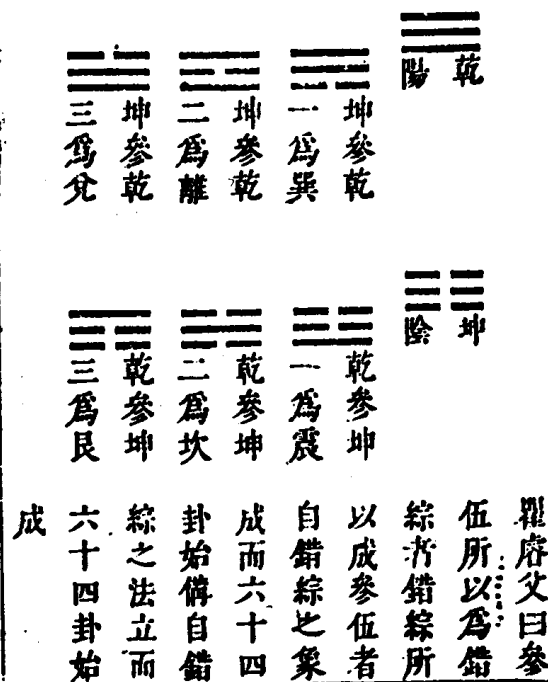 乾
陽
坤參乾
一爲巽
坤參乾
二爲離
坤參乾
三爲兌
坤
陰
乾參坤
一爲震
乾參坤
二爲坎
乾參坤
三爲艮
瞿睿父曰參
伍所以爲錯
綜者錯綜所
以成參伍者
自錯綜之象
成而六十四
卦始備自錯
綜之法立而
六十四卦始
成